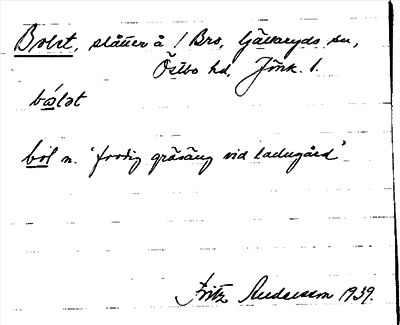 Bolet, slåtter å 1 Bro, Gällaryds sn,
Östbo hd, Jönk. l.
bol n. 'frodig gräsäng vid ladugård'
Fritz Andersson 1939.